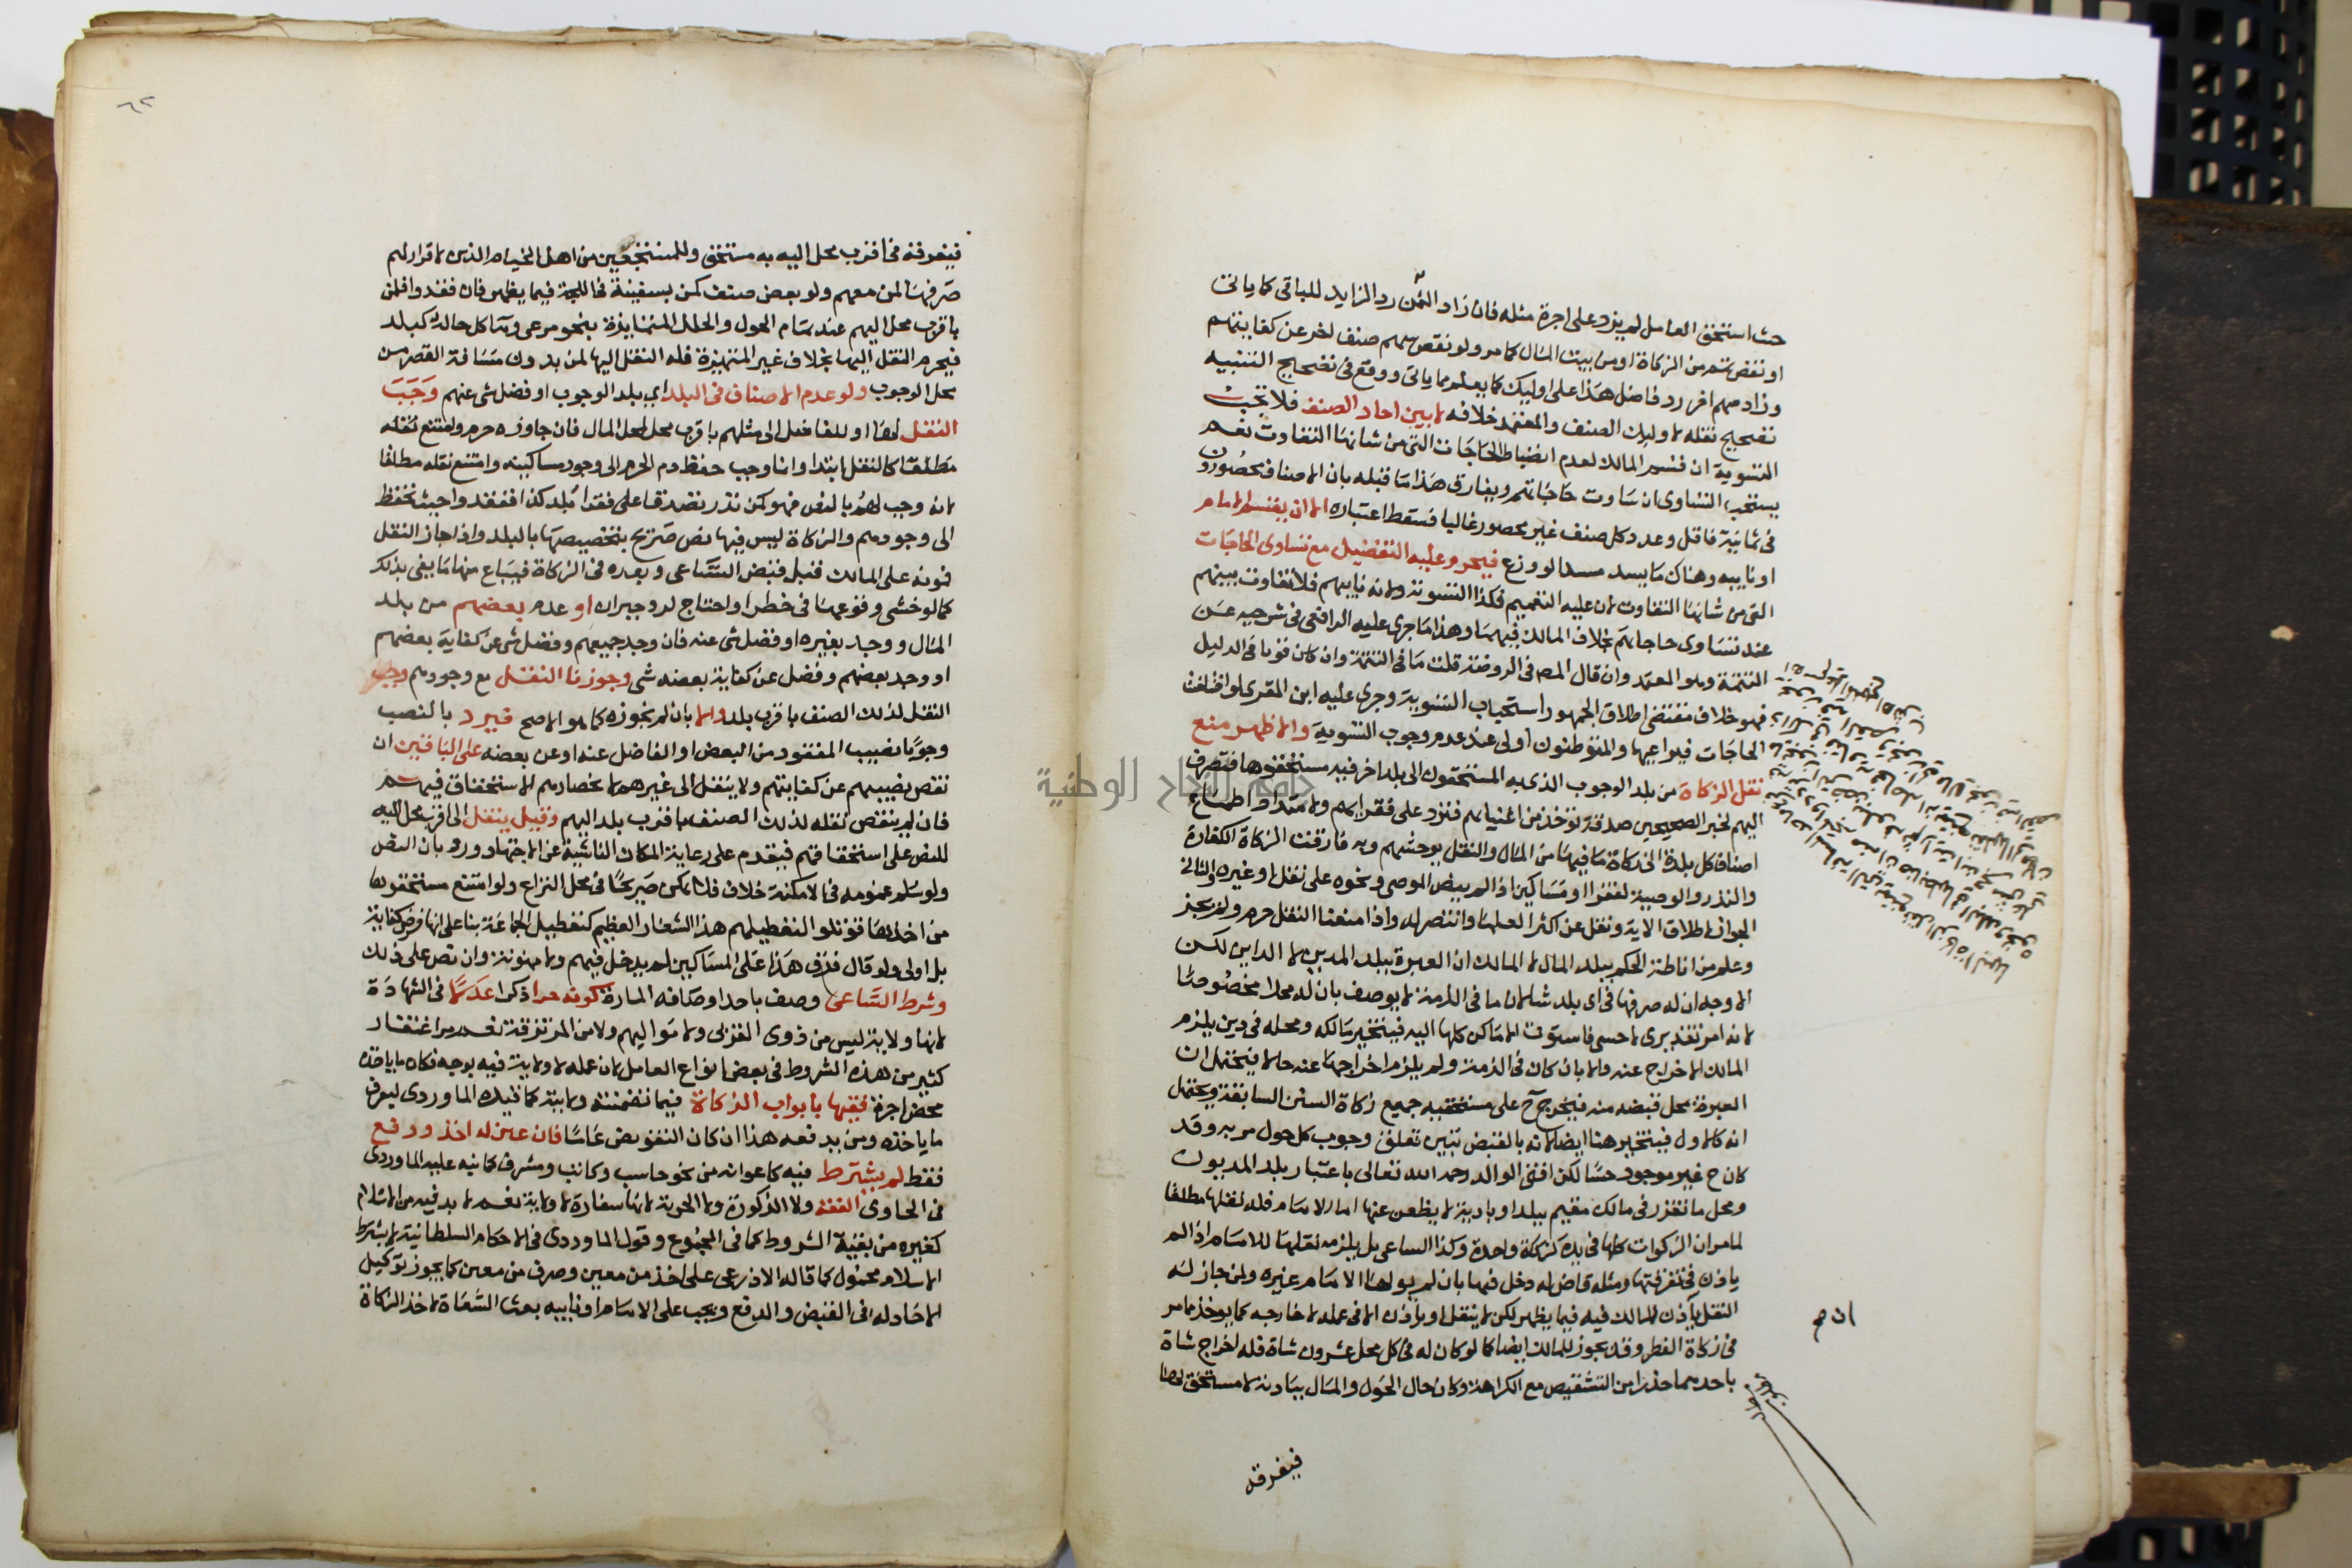 حيث استحق العامل لم يزد على اجرة مثله فان زاد الثمن رد الزايد للباقى كما ياتى
او نقص تمم من الزكاة او من بيت المال كما مر ولو نقص سهم صنف اخر عن كفايتهم
وزاد سهم اخر رد فاضل هذا على اوليك كما يعلم مما ياتى ووقع فى تصحيح التنبيه
تصحيح نقله لاوليك الصنف والمعتمد خلافه لا بين احاد الصنف فلا تجب
التسوية ان قسم المالك لعدم انضباط الحاجات التى من شانها التفاوت نعم
يستحب التساوى ان تساوت حاجاتهم ويفارق هذا ما قبله بان الاصناف محصورون
فى ثمانية فاقل وعدد كل صنف غير محصور غالبا فسقط اعتباره الا ان يقسم الامام
او نايبه وهناك ما يسد مسدا لو وزع فيحرم عليه التفضيل مع تساوى الحاجات
التى من شانها التفاوت لان عليه التعميم فكذا التسوية ولانه نايبهم فلا تفاوت بينهم
عند تساوى حاجاتهم بخلاف المالك فيهما وهذا ما جرى عليه الرافعى فى شرحيه عن
التتمة وهو المعتمد وان قال المصـ فى الروضة قلت ما فى التتمة وان كان قويا فى الدليل
فهو خلاف مقتضى اطلاق الجمهور استحباب التسوية وجرى عليه ابن المقرى لو اختلفت
الحاجات فيراعيها والمتوطنون اولى عند عدم وجوب التسوية والاظهر منع
نقل الزكاة من بلد الوجوب الذى به المستحقون الى بلد اخر فيه مستحقوها فتصرف
اليهم لخبر الصحيحين صدقة تؤخذ من اغنيائهم فترد على فقرايهم ولامتداد اطماع
اصناف كل بلدة الى زكاة ما فيها من المال والنقل يوحشهم وبه فارقت الزكاة الكفارة
والنذر والوصية لفقرا او مساكين اذا لم ينص الموصى ونحوه على نقل او غيره والثانى
الجواز لاطلاق الاية ونقل عن اكثر العلما وانتصر له واذا منعنا النقل حرم ولم يجز
وعلم من اناطة الحكم ببلد المال لا المالك ان العبرة ببلد المدين لا الداين لكن
الاوجه ان له صرفها فى اى بلد شا لان ما فى الذمة لا يوصف بان له محلا مخصوصا
لانه امر تقديرى لا حسى فاستوت الاماكن كلها اليه فيتخير مالكه ومحله فى دين يلزم
المالك الاخراج عنه والا بان كان فى الذمة ولم يلزم اخراجها عنه حالا فيحتمل ان
العبرة بمحل قبضه منه فيخرج ح على مستحقيه جميع زكاة السنن السابقة ويحتمل
انه كالاول فيتخير هنا ايضا لانه بالقبض تبين تعلق وجوب كل حول مر به وقد
كان ح غير موجود حسا لكن افتى الوالد رحمه الله تعالى باعتبار بلد المديون
ومحل ما تقرر فى مالك مقيم ببلد او بادية لا يظعن عنها اما الامام فله نقلها مطلقا
لما مر ان الزكوات كلها فى يده كزكاة واحدة وكذا الساعى بل يلزمه نقلها للامام اذا لم
ياذن فى تفرقتها ومثله قاض له دخل فيها بان لم يولها الامام غيره ولمن جاز له
النقل ياذن للمالك فيه فيما يظهر لكن لا ينقل او ياذن الا فى عمله لا خارجه كما يوخذ مما مر
فى زكاة الفطر وقد يجوز للمالك ايضا كما لو كان له فى كل محل عشرون شاة فله اخراج شاة
باحدهما حذرا من التشقيص مع الكراهة وكان حال الحول والمال ببادية لا مستحق لها
ان م
فيفرقه
٦٢
فيفرقه فى اقرب محل اليه به مستحق وللمنتجعين من اهل الخيام الذين لا قرار لهم
صرفها لمن معهم ولو بعض صنف كمن بسفينة فى اللجة فيما يظهر فان فقدوا فلمن
باقرب محل اليهم عند تمام الحول والحلل المتمايزة بنحو مرعى وما كل حلة كبلد
فيحرم النقل اليها بخلاف غير المتميزة فله النقل اليها لمن بدون مسافة القصر من
محل الوجوب ولو عدم الاصناف فى البلد اى بلد الوجوب او فضل شى عنهم وجب
النقل لها او للفاضل الى مثلهم باقرب محل لمحل المال فان جاوزه حرم وامتنع نقله
مطلقا كالنقل ابتدا وانما وجب حفظ دم الحرم الى وجود مساكينه وامتنع نقله مطلقا
لانه وجب لهم بالنص فهو كمن نذر تصدقا على فقرا بلد كذا ففقدوا حيث يحفظ
الى وجودهم والزكاة ليس فيها نص صريح بتخصيصها بالبلد واذا جاز النقل
فمونه على المالك قبل قبض الساعى وبعده فى الزكاة فيباع منها ما يفى بذلك
كما لو خشى وقوعها فى خطر او احتاج لرد جبران او عدم بعضهم من بلد
المال ووجد بغيره او فضل شى عنه فان وجد جميعهم وفضل شى عن كفاية بعضهم
او وجد بعضهم وفضل عن كفاية بعضه شى وجوزنا النقل مع وجودهم وجب
النقل لذلك الصنف باقرب بلد والا بان لم نجوزه كما هو الاصح فيرد بالنصب
وجوبا نصيب المفقود من البعض او الفاضل عنه او عن بعضه على الباقين ان
نقص نصيبهم عن كفايتهم ولا ينقل الى غيرهم لانحصارهم الاستحقاق فيهم
فان لم ينقص نقله لذلك الصنف باقرب بلد اليهم وقيل ينقل الى اقرب محل اليه
للنص على استحقاقهم فيقدم على رعاية المكان الناشية عن الاجتهاد ورد بان النص
ولو سلم عمومه فى الامكنة خلاف فلم يكن صريحا فى محل النزاع ولو امتنع مستحقوها
من اخذها قوتلوا لتعطيلهم هذا الشعار العظيم كتعطيل الجماعة بنا على انها فرض كفاية
بل اولى ولو قال فرق هذا على المساكين لم يدخل فيهم ولا ممونه وان نص على ذلك
وشرط الساعى وصف باحد اوصافه المارة كونه حرا ذكرا عدلا فى الشهادة
لانها ولاية ليس من ذوى القربى ولا مواليهم ولا من المرتزقة نعم مر اغتفار
كثير من هذه الشروط فى بعض انواع العامل لان عمله لا ولاية فيه بوجه فكان ما ياخذه
محض اجرة فقيها بابواب الزكاة فيما تضمنته ولايته كما قيده الماوردى ليعرف
ما ياخذه ومن يدفعه هذا ان كان التفويض عاما فان عين له اخذ ودفع
فقط لم يشترط فيه كاعوانه من نحو حاسب وكاتب ومشرف كما نبه عليه الماوردى
فى الحاوى الفقه ولا الذكورة ولا الحرية لانها سفارة لا ولاية نعم لا بد فيه من الاسلام
كغيره من بقية الشروط كما فى المجموع وقول الماوردى فى الاحكام السلطانية لا يشترط
الاسلام محمول كما قاله الاذرعى على اخذ من معين وصرف من معين كما يجوز توكيل
الاحاد له فى القبض والدفع ويجب على الامام او نايبه بعث السعاة لاخذ الزكاة
جامعة النجاح الوطنية